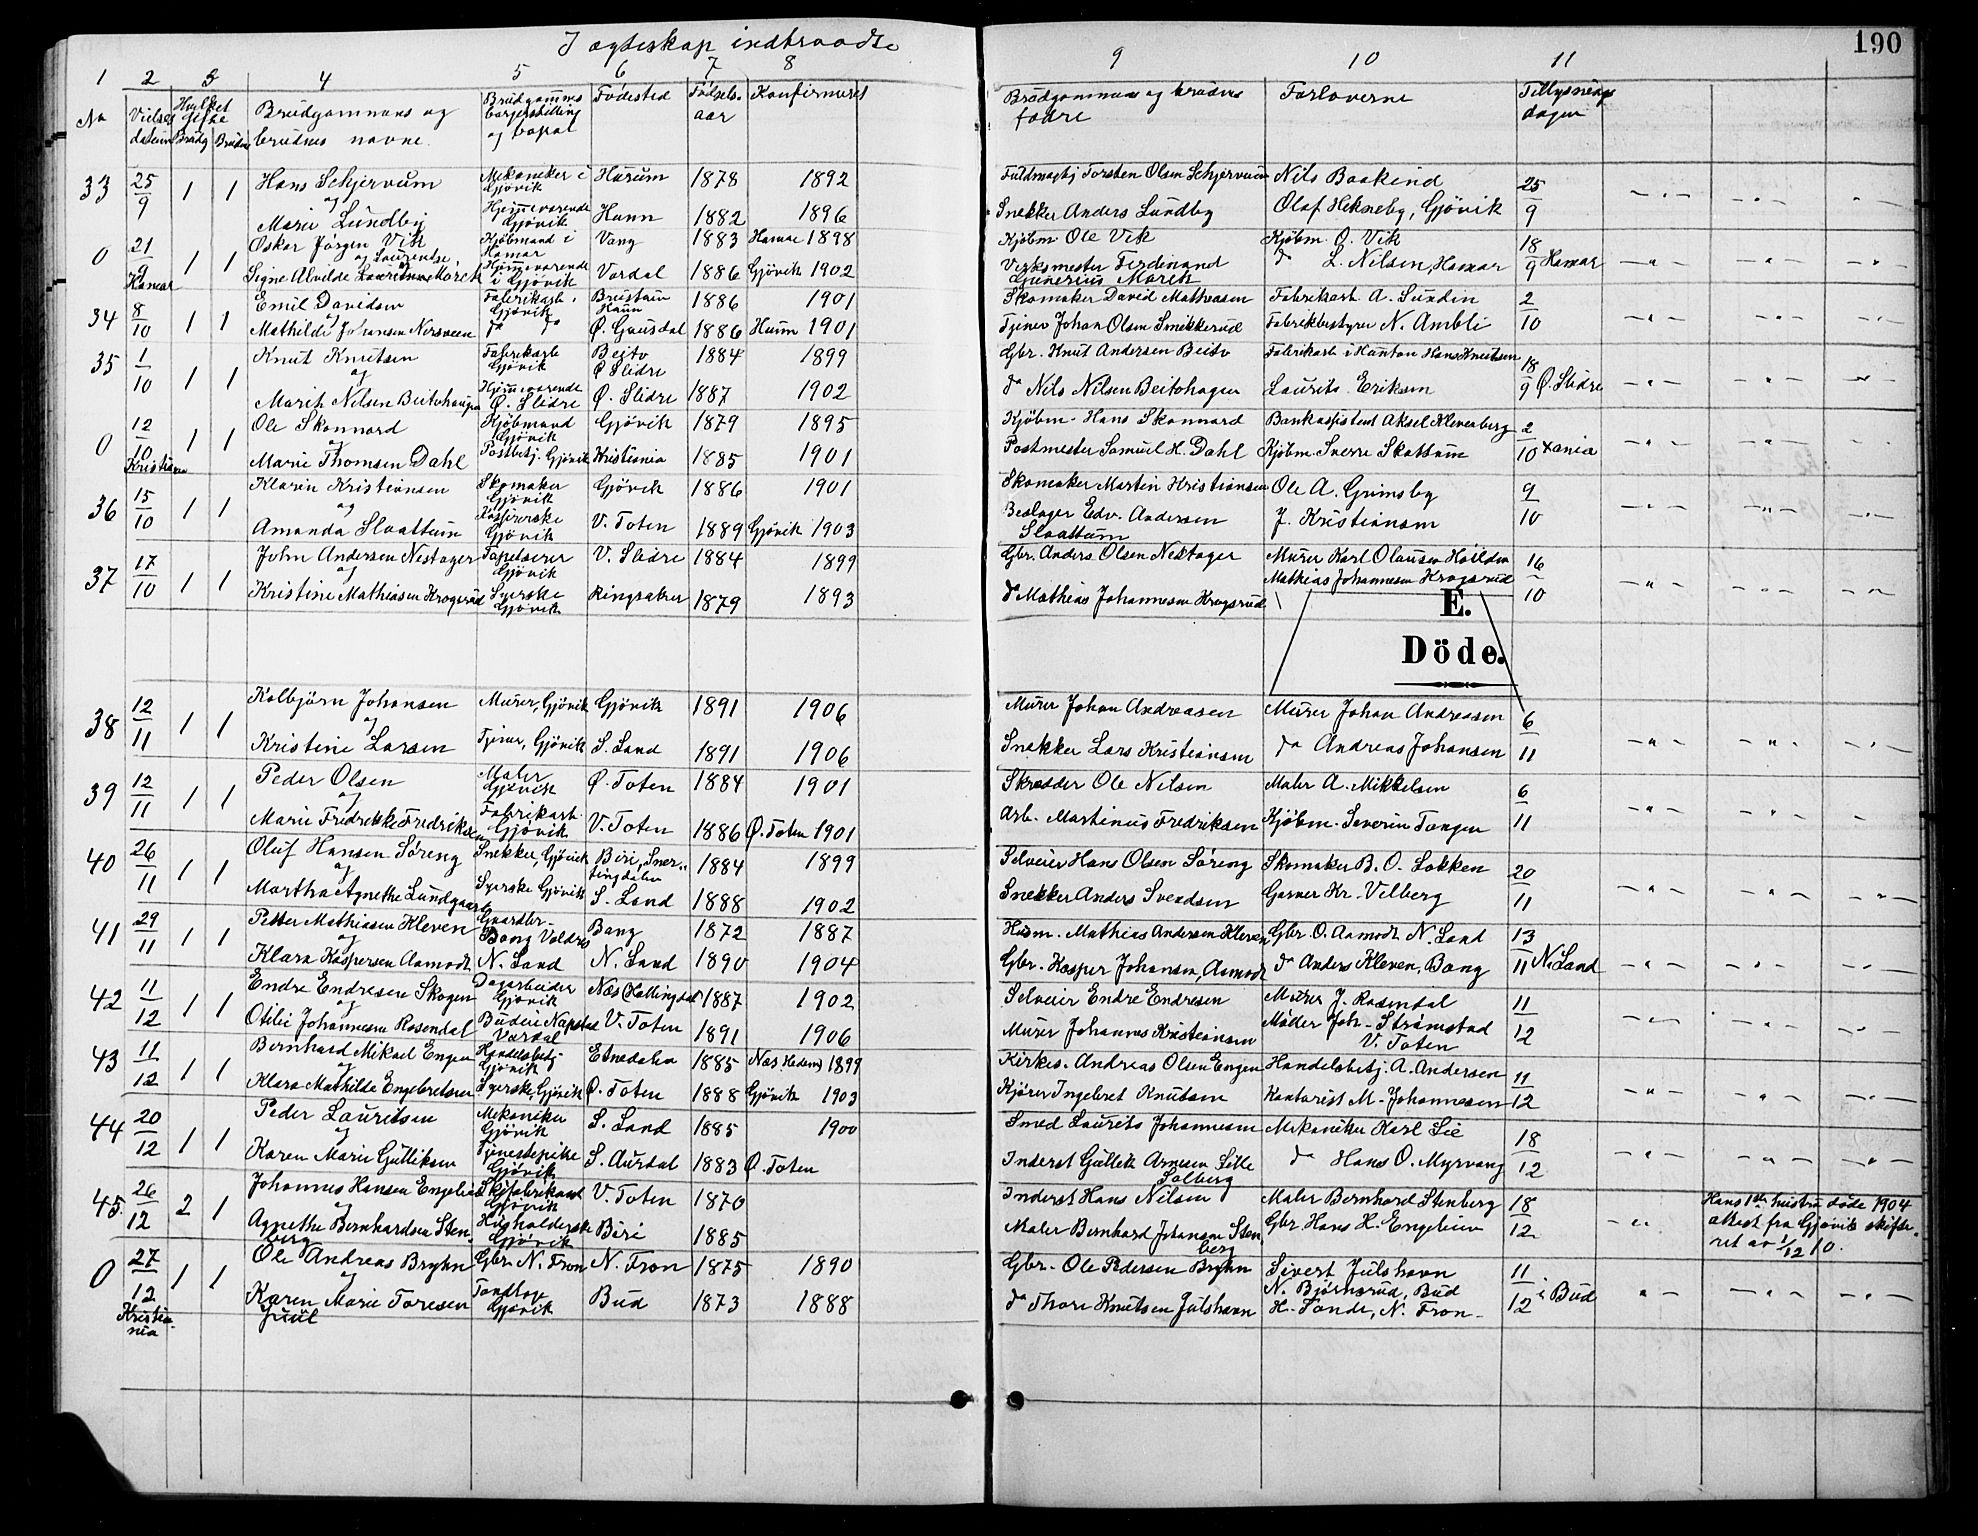 I ægteskap indtraadte
190
1 2 3 4 5 6 7 8 9 10 11
No Vielses datum Hvilket gifte Brudg Bruden Brudgommens og brudens navne. Brudgommens borgerstilling og bopæl Födested Födsels-aar Konfirmeret Brudgommens og brudens fædre Forloverne Tillysnings dagen
33 25/9 1 1 Hans Schjervum Mekaniker i Gjövik Hurum 1878 1892 Fuldmægtij Torsten Olsen Schjervum Nils Baakind 25/9
og
Marie Lundby Hjemmeværende Gjövik Hunn 1882 1896 Snekker Anders Lundby Olaf Hekneby, Gjövik
0 21/9 Hamar 1 1 Oskar Jörgen Vik Kjöbmand i Hamar Vang 1883 Hamar 1898 Kjöbm Ole Vik Kjöbm. O. Vik 18/9 Hamar
og Laurentse
Signe Alvilde Marck Hjemmeværende i Gjövik Vardal 1886 Gjövik 1902 Verksmester Ferdinand Gunerius Marck do L. Nilsen, Hamar
34 8/10 1 1 Emil Davidsen Fabrikarb. Gjövik Hunn 1886 1901 Skomaker David Mathiasen Fabrikarb. A. Sundin 2/10
og
Mathilde Johansen Nersveen do do Ö. Gausdal 1886 Hunn 1901 Tjener Johan Olsen Smikkerud Fabrikbestyrer N. Ambli
35 1/10 1 1 Knut Knutsen Fabrikarb Gjövik Beito Ø Slidre 1884 1899 Gbr. Knut Andersen Beito Fabrikarb i Hunton Hans Knutsen 18/9 Ø. Slidre
og
Marit Nilsen Beitohaugen Hjemmeværende Ø. Slidre Ø. Slidre 1887 1902 do Nils Nilsen Beitohagen Laurits Eriksen
0 12/10 Kristiania 1 1 Ole Skonnord Kjöbmand Gjövik Gjövik 1879 1895 Kjöbm. Hans Skonnord Bankassistent Aksel Klevenberg 2/10 Xania
og
Marie Thomsen Dahl Postbetj. Gjövik Kristiania 1885 1901 Postmester Samuel H. Dahl Kjöbm. Sverre Skattum
36 15/10 1 1 Klarin Kristiansen Skomaker Gjövik Gjövik 1886 1901 Skomaker Martin Kristiansen Ole A. Grimsby 9/10
og
Amanda Slaattum Kassererske Gjövik V. Toten 1889 Gjövik 1903 Beslager Edv. Andersen Slaattum J. Kristiansen
37 17/10 1 1 John Andersen Nestager Tapetserer Gjövik V. Slidre 1884 1899 Gbr. Anders Olsen Nestager Murer Karl Olausen Höilden 16/10
og
Kristine Mathiasen Krogsrud Syerske Gjövik Ringsaker 1879 1893 do Mathias Johannesen Krogsrud Mathias Johannesen Krogsrud
E.
Döde.
38 12/11 1 1 Kolbjörn Johansen Murer, Gjövik Gjövik 1891 1906 Murer Johan Andreasen Murer Johan Andreasen 6/11
og
Kristine Larsen Tjener, Gjövik S. Land 1891 1906 Snekker Lars Kristiansen do Andreas Johansen
39 12/11 1 1 Peder Olsen Maler Gjövik Ø. Toten 1884 1901 Skrædder Ole Nilsen Maler A. Mikkelsen 6/11
og
Marie Fredrekke Fredriksen Fabrikarb Gjövik V. Toten 1886 Ø. Toten 1901 Arb. Martinus Fredriksen Kjöbm. Severin Tangen
40 26/11 1 1 Oluf Hansen Söreng Snekker, Gjövik Biri, Snertingdalen 1884 1899 Selveier Hans Olsen Söreng Skomaker B. O. Lökken 20/11
og
Martha Agnethe Lundgaard Syerske Gjövik S. Land 1888 1902 Snekker Anders Svendsen Garver Kr. Vilberg
41 29/11 1 1 Petter Mathiasen Kleven Gaardbr. Bang Valdres Bang 1872 1887 Husm. Mathias Andersen Kleven Gbr. O. Aamodt N. Land 13/11 N. Land
og
Klara Kaspersen Aamodt N. Land N. Land 1890 1904 Gbr. Kasper Johansen, Aamodt do Anders Kleven, Bang
42 11/12 1 1 Endre Endresen Skogen Dagarbeider Gjövik Næs (Hallingdal 1887 1902 Selveier Endre Endresen Murer J. Rosendal 11/12
og
Otilie Johannesen Rosendal Budeie Vardal V. Toten 1891 1906 Murer Johannes Kristiansen Möder Joh. Strömstad V. Toten
43 11/12 1 1 Bernhard Mikael Engen Handelsbetj. Gjövik Etnedalen 1885 Næs Hedem 1899 Kirkes. Andreas Olsen Engen Handelsbetj. A. Andersen 11/12
og
Klara Mathilde Engebretsen Syerske, Gjövik Ø. Toten 1888 Gjövik 1903 Kjörer Ingebret Knutsen Kontorist M. Johannesen
44 20/12 1 1 Peder Lauritsen Mekaniker Gjövik S. Land 1885 1900 Smed Laurits Johannesen Mekaniker Karl Lie 18/12
og
Karen Marie Gulliksen Tjenestepike Gjövik S. Aurdal 1883 Ø. Toten Inderst Gullik Arnesen Lille Solberg do Hans O. Myrvang
45. 26/12 2 1 Johannes Hansen Engelien Skifabrikant Gjövik V. Toten 1870 Inderst Hans Nilsen Maler Bernhard Stenberg 18/12 Hans 1ste hustru döde 1904 attest fra Gjövik skifteret av 1/12 10.
og
Agnethe Bernhardsen Stenberg Husholderske Gjövik Biri 1885 Maler Bernhard Johansen Stenberg Gbr. Hans H. Engelien
0 27/12 Kristiania 1 1 Ole Andreas Bryhn Gbr. N. Fron N. Fron 1875 1890 Gbr. Ole Pedersen Bryhn Sivert Julshavn N. Björnsrud, Bud 11/12 i Bud
og
Karen Marie Toresen Juul Tandlæge Gjövik Bud 1873 1888 do Thore Knutsen Julshavn H. Sande, N. Fron